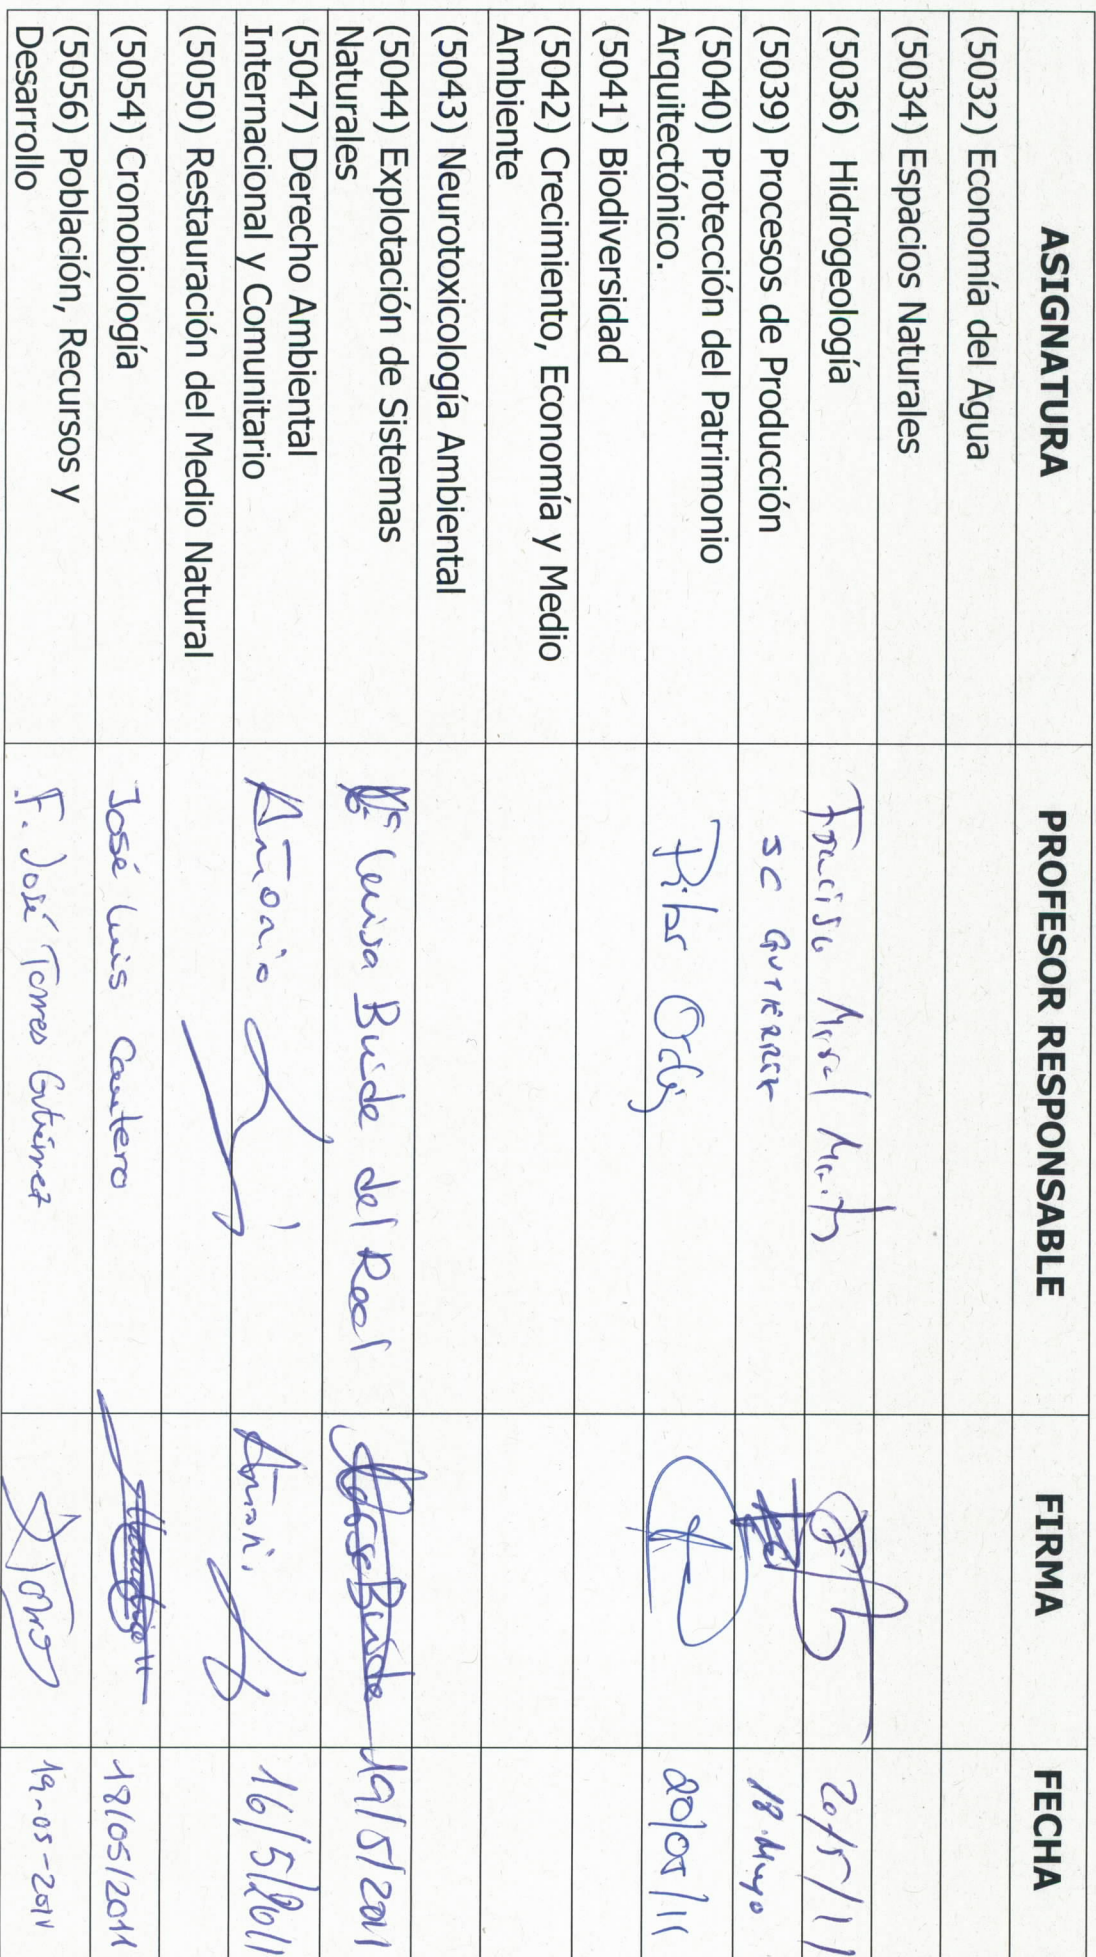 ASIGNATURA PROFESOR RESPONSABLE FIRMA FECHA
(5032) Economía del Agua
(5034) Espacios Naturales
(5036) Hidrogeología 20/5/11
(5039) Procesos de Producción JC GUTIÉRREZ 18 Mayo
(5040) Protección del Patrimonio
Arquitectónico. Pilar 20/05/11
(5041) Biodiversidad
(5042) Crecimiento, Economía y Medio
Ambiente
(5043) Neurotoxicología Ambiental
(5044) Explotación de Sistemas
Naturales Mª Luisa Buide del Real 19/5/2011
(5047) Derecho Ambiental
Internacional y Comunitario Antonio 16/5/2011
(5050) Restauración del Medio Natural
(5054) Cronobiología José Luis Cantero 18/05/2011
(5056) Población, Recursos y
Desarrollo F. José Torres Gutiérrez 19-05-2011